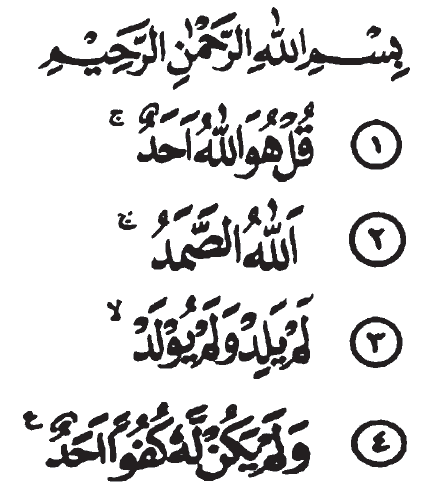 بِسْمِ اللهِ الرَّحْمٰنِ الرَّحِيْمِ
١ قُلْ هُوَ اللهُ اَحَدٌ ۚ
٢ اَللهُ الصَّمَدُ ۚ
٣ لَمْ يَلِدْ وَلَمْ يُوْلَدْ ۙ
٤ وَلَمْ يَكُنْ لَّهٗ كُفُوًا اَحَدٌ ࣖ